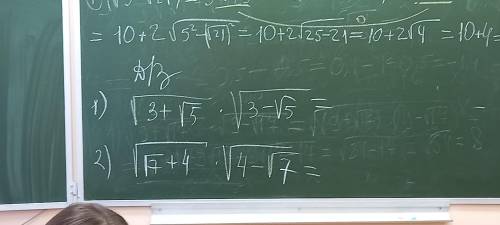 = 10+2√(5²-(√21)²) = 10+2√(25-21) = 10+2√4 = 10+4=
Д/з
1) √(3+√5) · √(3-√5) =
2) √(√7+4) · √(4-√7) =